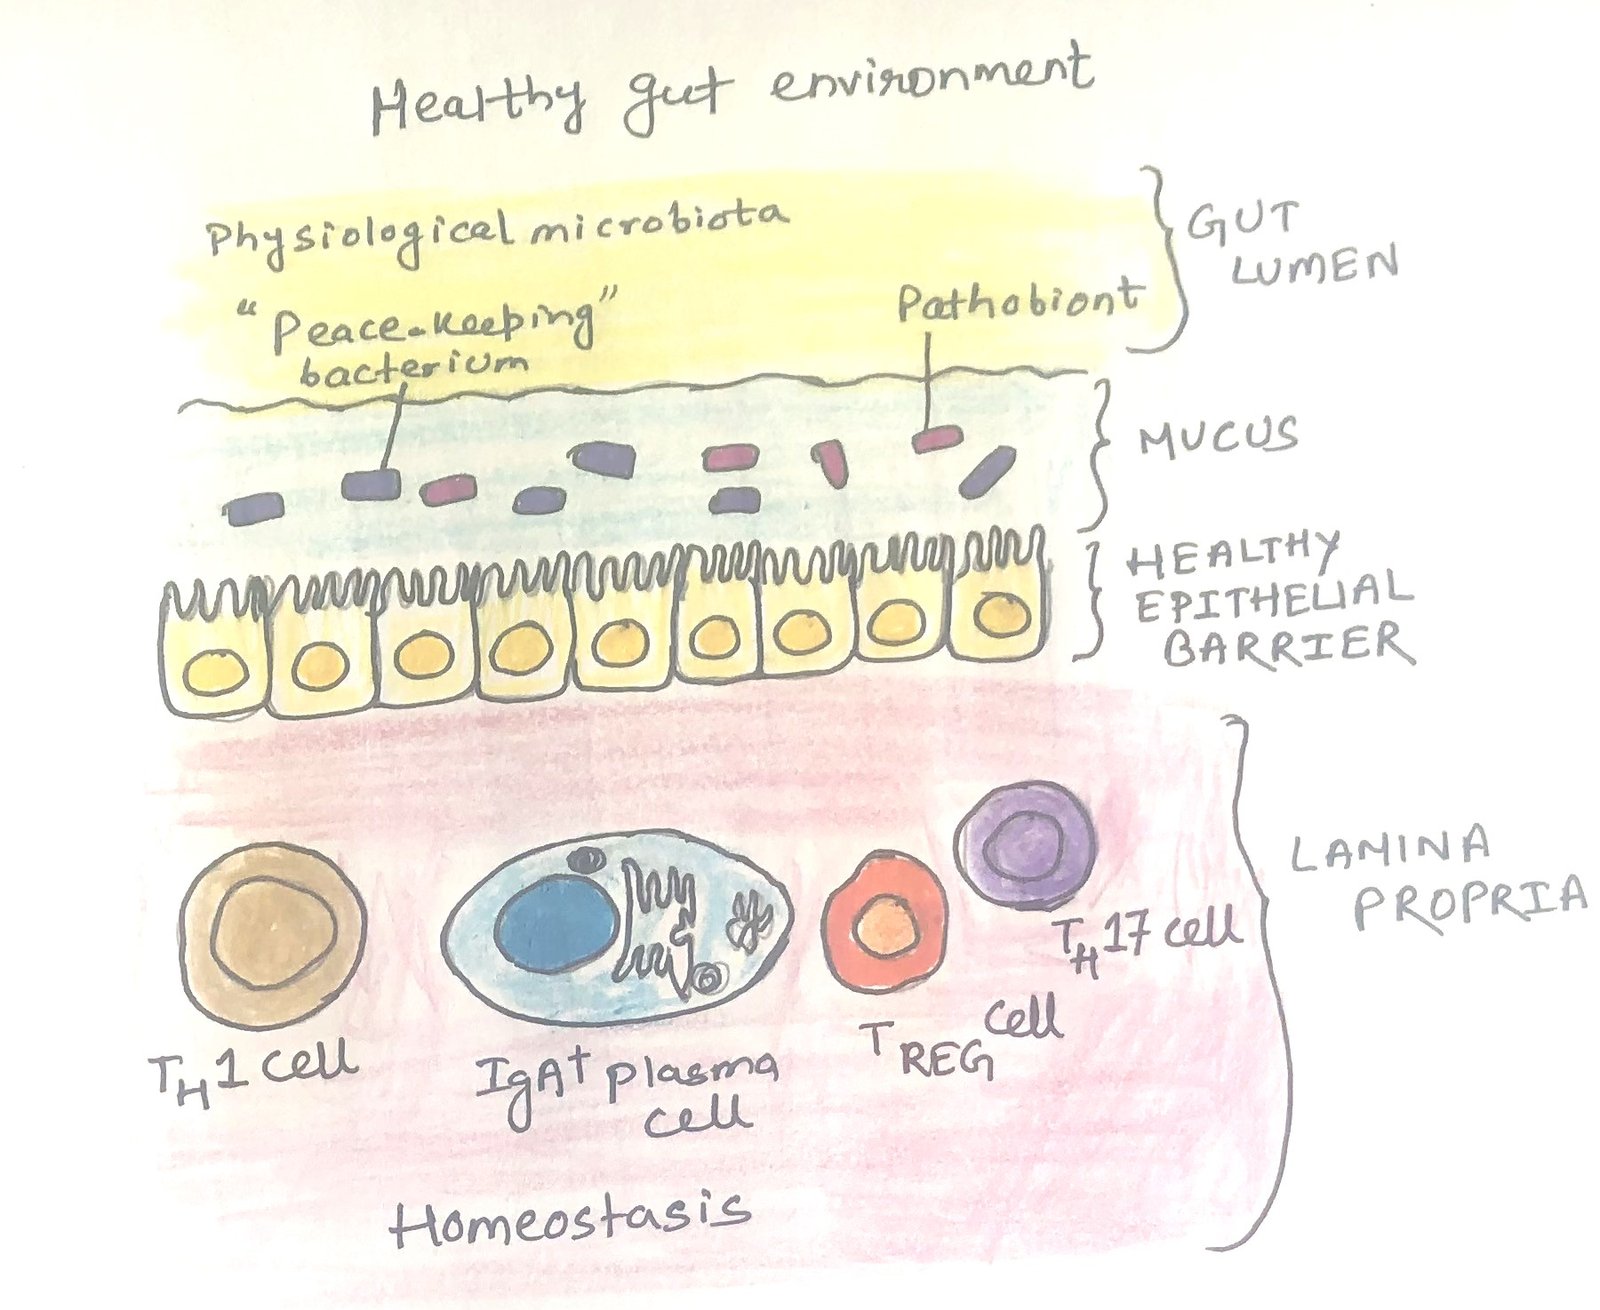 Healthy gut environment
Physiological microbiota
GUT
LUMEN
"Peace-keeping"
bacterium
Pathobiont
MUCUS
HEALTHY
EPITHELIAL
BARRIER
LAMINA
PROPRIA
TH1 cell
IgA+ plasma
cell
TREG cell
TH17 cell
Homeostasis